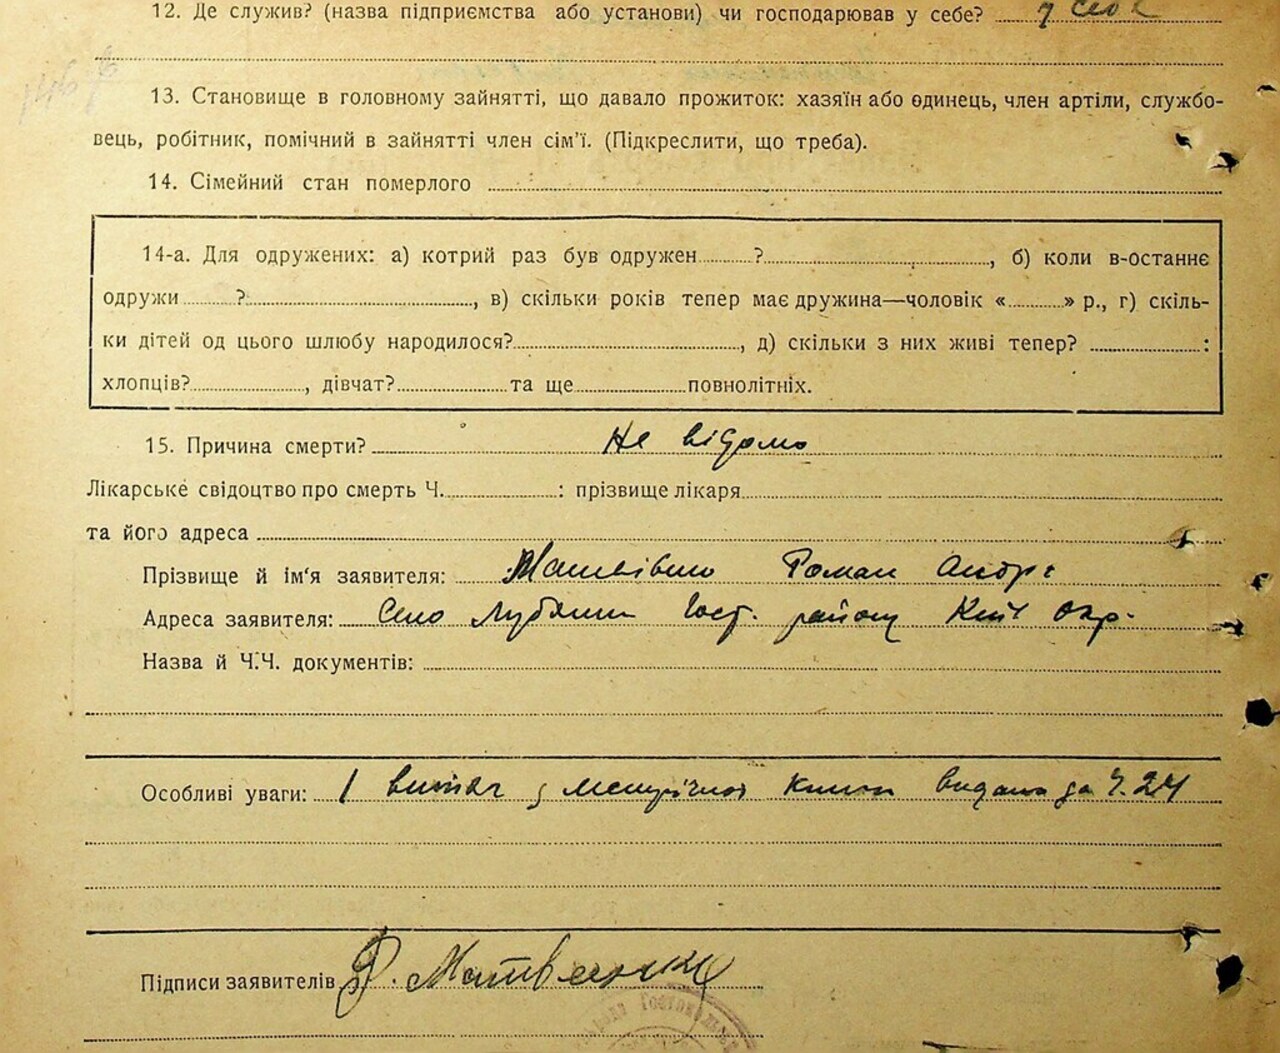 12. Де служив? (назва підприємства або установи) чи господарював у себе? у себе
13. Становище в головному зайнятті, що давало прожиток: хазяїн або одинець, член артіли, службо-
вець, робітник, помічний в зайнятті член сім'ї. (Підкреслити, що треба).
14. Сімейний стан померлого
14-а. Для одружених: а) котрий раз був одружен ?, б) коли в-останнє
одружи ?, в) скільки років тепер має дружина—чоловік « » р., г) скіль-
ки дітей од цього шлюбу народилося?, д) скільки з них живі тепер? :
хлопців?, дівчат? та ще повнолітніх.
15. Причина смерти? Не відомо
Лікарське свідоцтво про смерть Ч. : прізвище лікаря
та його адреса
Прізвище й ім'я заявителя: Роман Андр
Адреса заявителя: Село Гост. району Київ Окр.
Назва й Ч.Ч. документів:
Особливі уваги: 1 витяг з метричної книги видана за Ч. 24
Підписи заявителів Р. Матвієнко